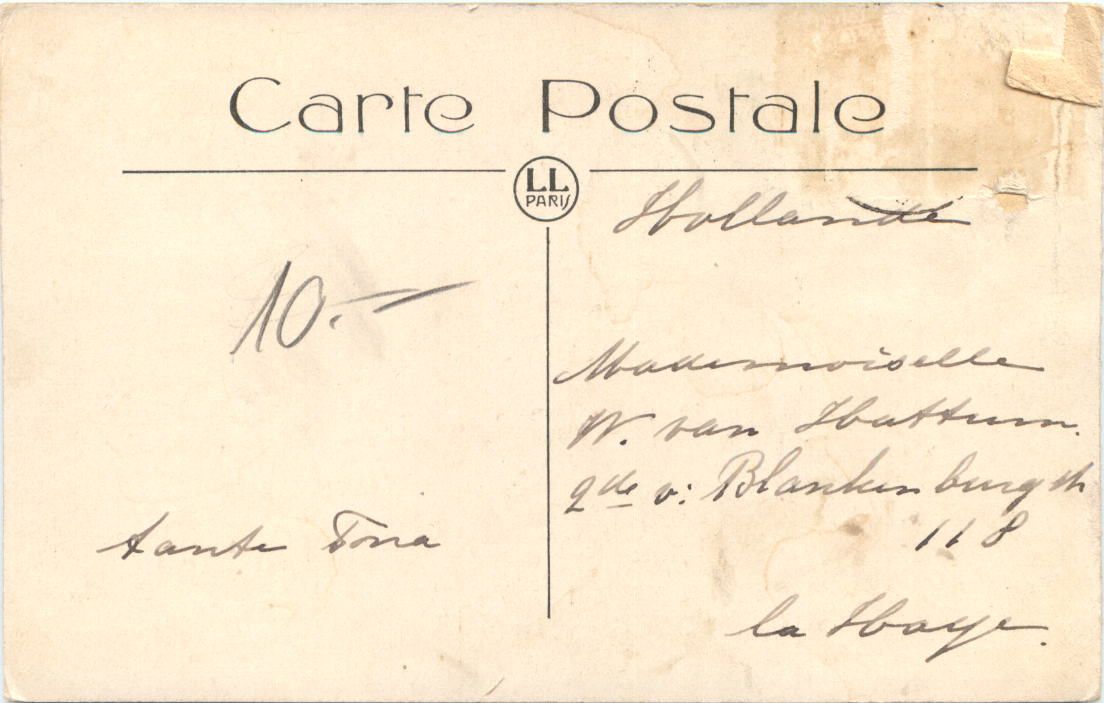 Carte Postale
LL
PARIS
Hollande
10.-
Mademoiselle
W. van Hattum.
2de v: Blankenburgstr
118
tante Tona
la Haye.